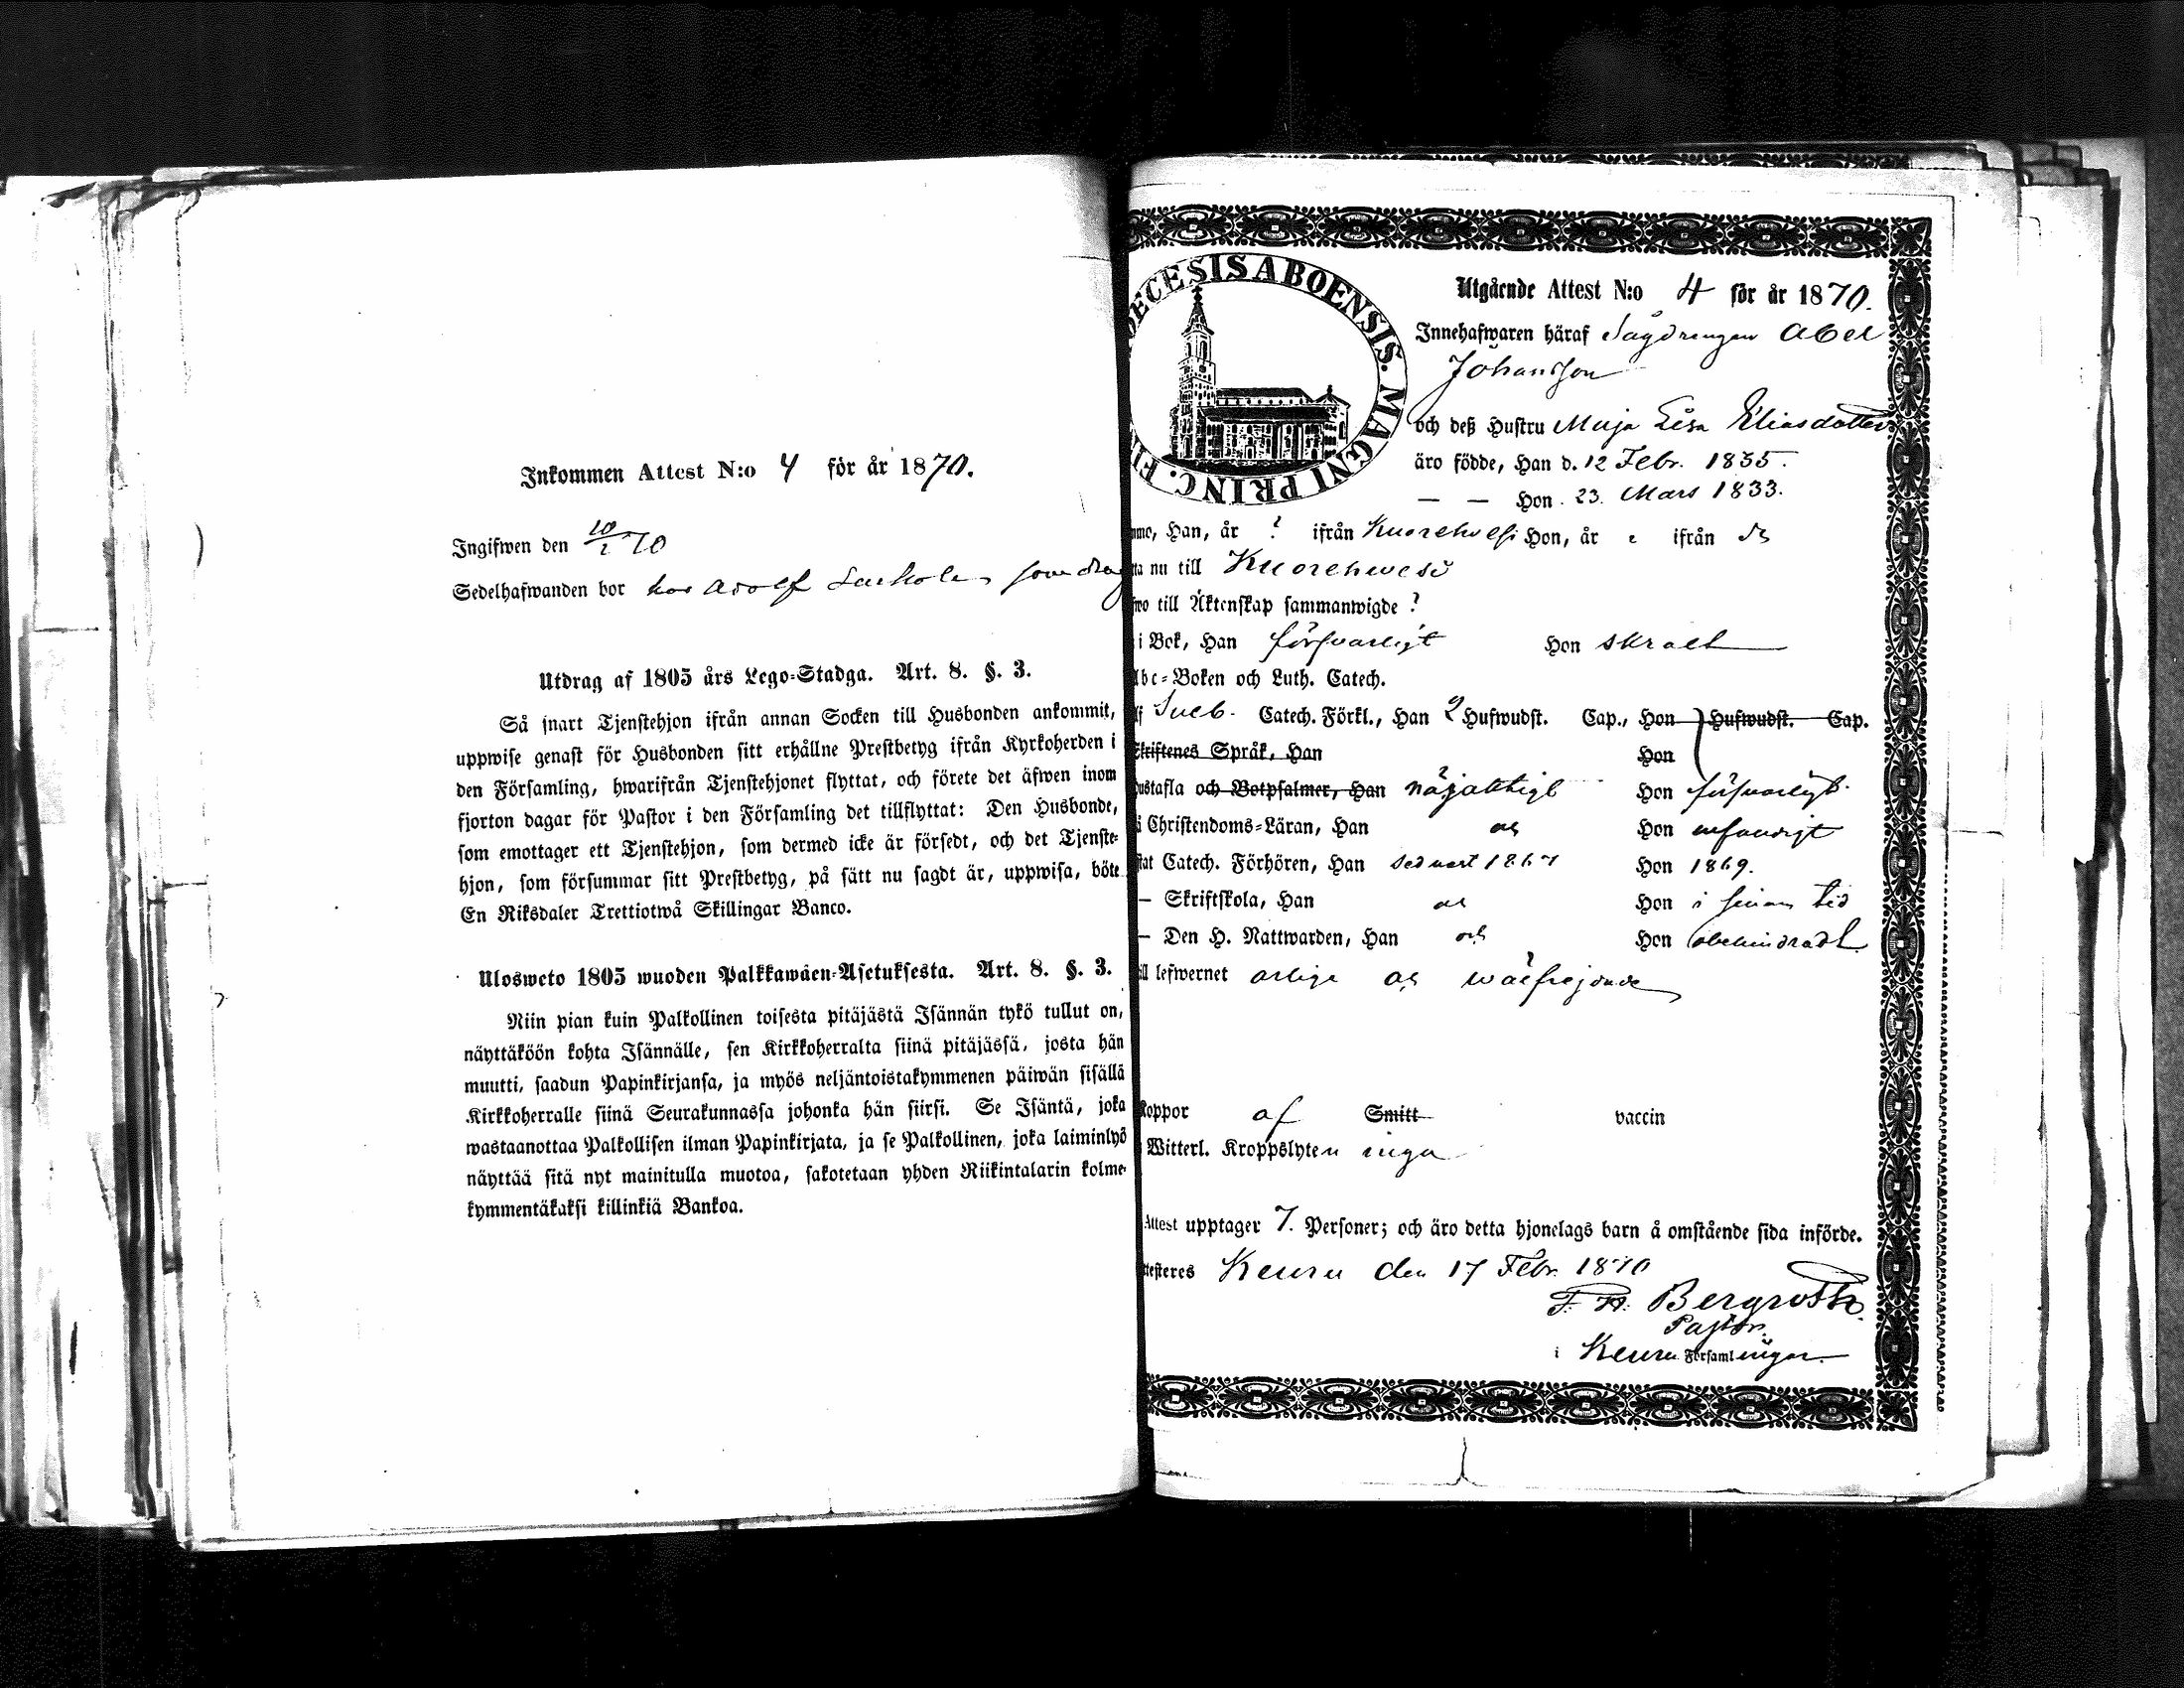 Inkommen Attest N:o 4 för år 1870.
Ingifwen den
Sedelhafwanden bor hos Adolf som
Utdrag af 1805 års Lego-Stadga. Art. 8. §. 3.
Så snart Tjenstehjon ifrån annan Socken till Husbonden ankommit,
uppwise genast för Husbonden sitt erhållne Prestbetyg ifrån Kyrkoherden i
den Församling, hwarifrån Tjenstehjonet flyttat, och förete det äfwen inom
fjorton dagar för Pastor i den Församling det tillflyttat: Den Husbonde,
som emottager ett Tjenstehjon, som dermed icke är försedt, och det Tjenste-
hjon, som försummar sitt Prestbetyg, på sätt nu sagdt är, uppwisa, böte
En Riksdaler Trettiotwå Skillingar Banco.
Ulosweto 1805 wuoden Palkkawäen-Asetuksesta. Art. 8. §. 3.
Niin pian kuin Palkollinen toisesta pitäjästä Isännän tykö tullut on,
näyttäköön kohta Isännälle, sen Kirkkoherralta siinä pitäjässä, josta hän
muutti, saadun Papinkirjansa, ja myös neljäntoistakymmenen päiwän sisällä
Kirkkoherralle siinä Seurakunnassa johonka hän siirsi. Se Isäntä, joka
wastaanottaa Palkollisen ilman Papinkirjata, ja se Palkollinen, joka laiminlyö
näyttää sitä nyt mainitulla muotoa, sakotetaan yhden Riikintalarin kolme-
kymmentäkaksi killinkiä Bankoa.
ECESIS ABOENSIS. MAGNI PRINC. FI
Utgående Attest N:o 4 för år 1870.
Innehafwaren häraf Sågdrengen Abel
Johansson
och deß Hustru Maja Lisa Eliasdotter
äro födde, Han d. 12 Febr. 1835.
— — Hon 23. Mars 1833.
mo, Han, år ? ifrån Kuorehvesi Hon, år ifrån
ta nu till Kuorehvesi
wo till Äktenskap sammanwigde ?
i Bok, Han försvarligt Hon skralt
Abc-Boken och Luth. Catech.
Sueb. Catech. Förkl., Han 2 Hufwudst. Cap., Hon Hufwudst. Cap.
Skriftenes Språk, Han Hon
ustafla och Botpsalmer, Han nöjaktigt Hon försvarligt
i Christendoms-Läran, Han Hon
stat Catech. Förhören, Han Hon 1869.
— Skriftskola, Han Hon i sinom tid
— Den H. Nattwarden, Han och Hon obehindradt
till lefwernet ärlige och wälfrejdade
koppor af Smitt vaccin
Witterl. Kroppslyten inga
Attest upptager 7. Personer; och äro detta hjonelags barn å omstående sida införde.
ttesteres Keuru den 17 Febr. 1870
F. H. Bergroth
Pastor.
i Keuru Församlingar.